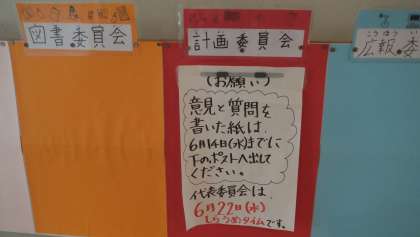 図書委員会
計画委員会
こうほう
広報委
(お願い)
意見と質問を
書いた紙は、
6月14日(水)までに
下のポストへ出して
ください。
代表委員会は、
6月22日(木)
しらうめタイムです。